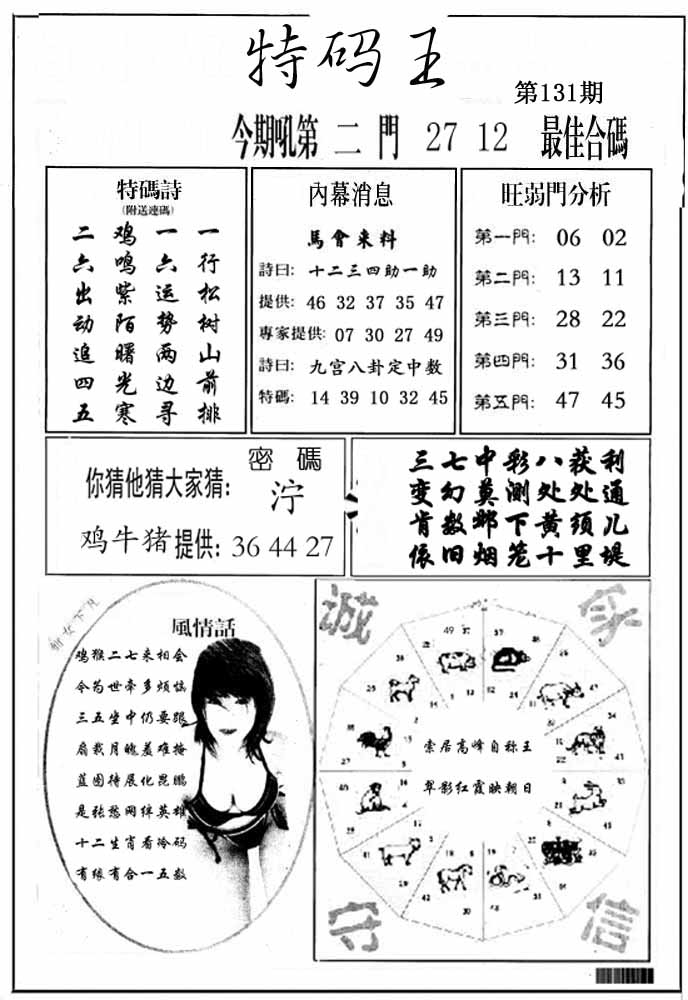 特码王
第131期
今期吼第 二 門 27 12 最佳合碼
特碼詩
(附送連碼)
一行松树山前排
一六运势两边寻
鸡鸣紫陌曙光寒
二六出动追四五
內幕消息
馬會来料
詩曰: 十二三四助一助
提供: 46 32 37 35 47
專家提供: 07 30 27 49
詩曰: 九宫八卦定中数
特碼: 14 39 10 32 45
旺弱門分析
第一門: 06 02
第二門: 13 11
第三門: 28 22
第四門: 31 36
第五門: 47 45
密碼
你猜他猜大家猜: 泞
鸡牛猪提供: 36 44 27
三七中彩八获利
变幻莫测处处通
肯数邺下黄须儿
依旧烟笼十里堤
仙女下凡
風情話
鸡猴二七来相会
令芶世牵多烦恼
三五坐中仍要跟
扇裁月魄羞难掩
蓝图待展化昆鹏
是张愁网绊英雄
十二生肖看冷码
有缘有合一五数
诚
守
信
索居高峰自称王
翠影红霞映朝日